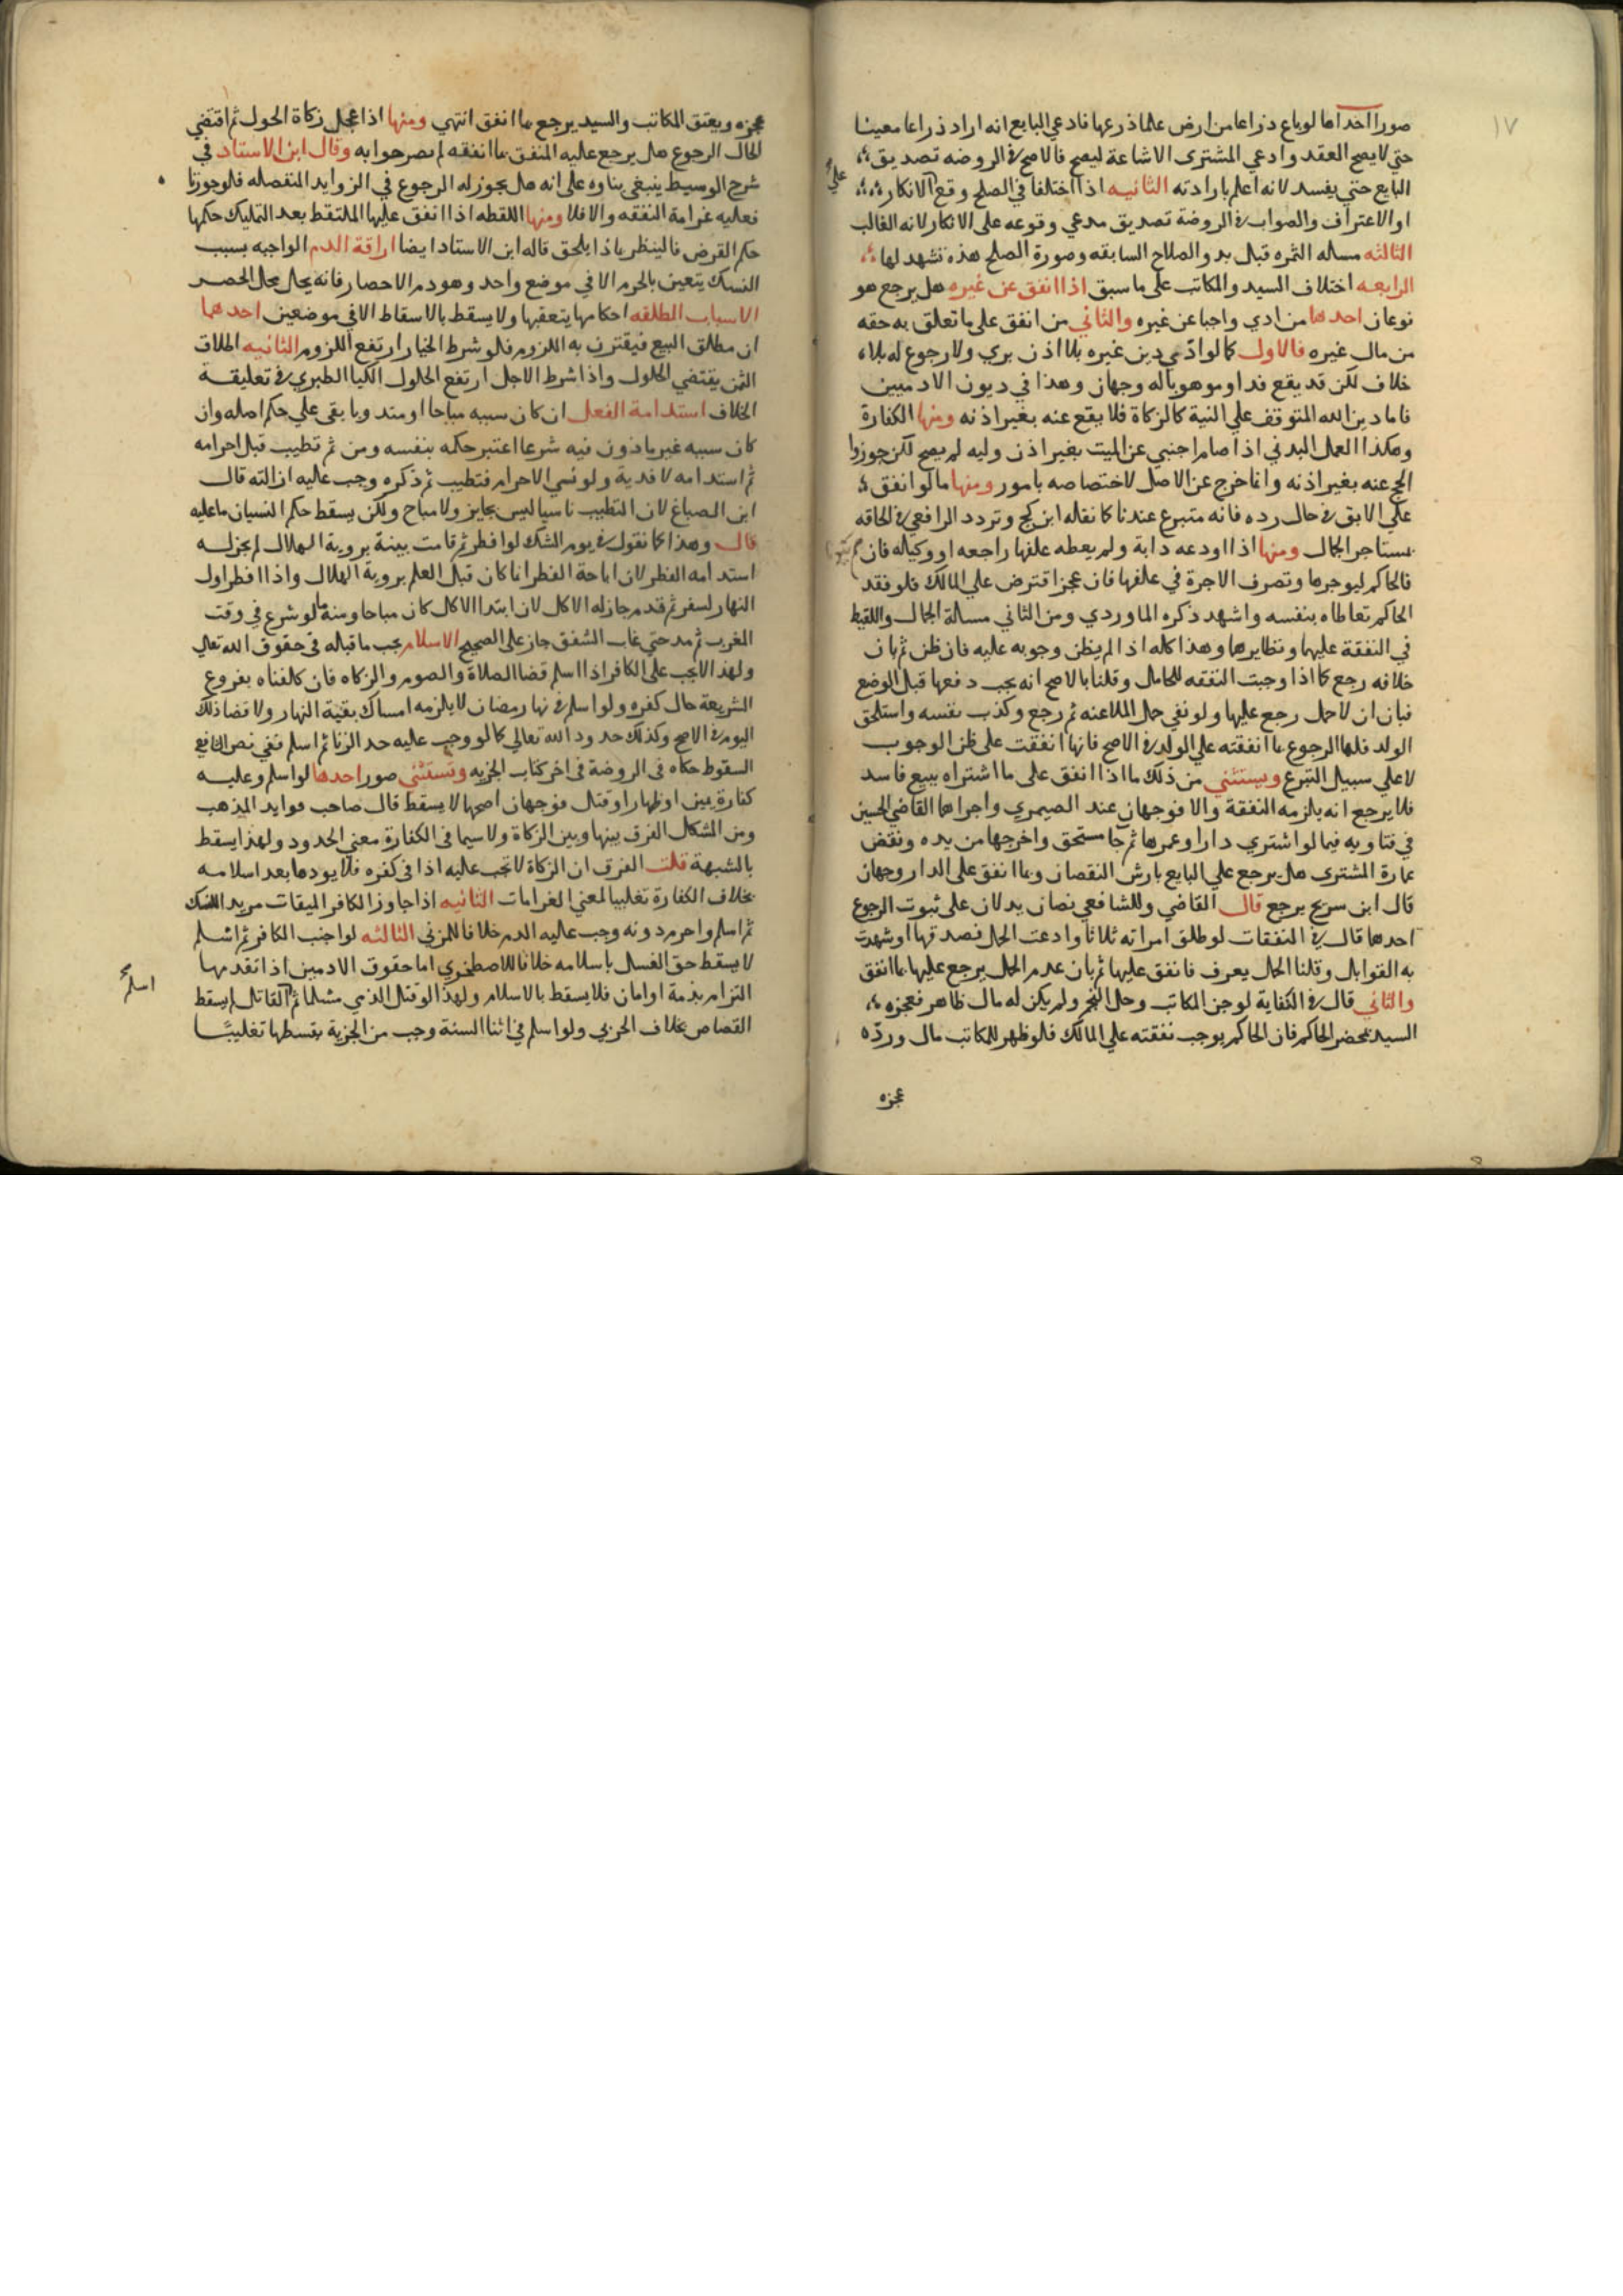 ١٧
صورا احداها لو باع ذراعا من ارض علما ذرعها فادعي البايع انه اراد ذراعا معينا
حتي لا يصح العقد وادعي المشتري الاشاعة ليصح فالاصح في الروضه تصديق
البايع حتي يفسد لانه اعلم بارادته الثانيه اذا اختلفا في الصلح وقع علي الانكار
او الاعتراف والصواب في الروضة تصديق مدعي وقوعه على الانكار لانه الغالب
الثالثه مساله الثمره قبل بدو الصلاح السابقه وصورة الصلح هذه تشهد لها
الرابعه اختلاف السيد والمكاتب على ما سبق اذا انفق عن غيره هل يرجع هو
نوعان احدها من ادي واجبا عن غيره والثاني من انفق على ما تعلق به حقه
من مال غيره فالاول كما لو ادي دين غيره بلا اذن بري ولا رجوع له بلا
خلاف لكن قد يقع فداو موهوبا له وجهان وهذا في ديون الادميين
فاما دين الله المتوقف علي النية كالزكاة فلا يقع عنه بغير اذنه ومنها الكفارة
وهكذا العمل البدني اذا صام اجنبي عن الميت بغير اذن وليه لم يصح لكن جوزوا
الحج عنه بغير اذنه وانما خرج عن الاصل لاختصاصه بامور ومنها ما لو انفق
علي الابق في حال رده فانه متبرع عندنا كما نقله ابن كج وتردد الرافعي في الحاقه
بمستاجر الجمال ومنها اذا اودعه دابة ولم يعطه علفها راجعه او وكيله فان
فالحاكم ليوجرها وتصرف الاجرة في علفها فان عجز اقترض علي المالك فلو فقد
الحاكم تعاطاه بنفسه واشهد ذكره الماوردي ومن الثاني مسالة الجمال واللقيط
في النفقة عليها ونظايرها وهذا كله اذا لم يظن وجوبه عليه فان ظن ثم بان
خلافه رجع كما اذا وجبت النفقه للحامل وقلنا بالاصح انه يجب دفعها قبل الوضع
فبان ان لا حمل رجع عليها ولو نفي حمل الملاعنه ثم رجع وكذب نفسه واستلحق
الولد فلها الرجوع بما انفقته علي الولد في الاصح فانها انفقت على ظن الوجوب
لا علي سبيل التبرع ويستثني من ذلك ما اذا انفق على ما اشتراه ببيع فاسد
فلا يرجع انه يلزمه النفقة والا فوجهان عند الصيمري واجراهما القاضي الحسين
في فتاويه فيما لو اشتري دارا وعمرها ثم جا مستحق واخرجها من يده ونقض
عمارة المشتري هل يرجع علي البايع بارش النقصان وبما انفق على الدار وجهان
قال ابن سريج يرجع قال القاضي وللشافعي نصان يدلان على ثبوت الرجوع
احدها قال في النفقات لو طلق امراته ثلاثا وادعت الحمل فصدقها او شهدت
به القوابل وقلنا الحمل يعرف فانفق عليها ثم بان عدم الحمل يرجع عليها بما انفق
والثاني قال في الكفاية لو جن المكاتب وحل النجم ولم يكن له مال ظاهر فعجزه
السيد بمحضر الحاكم فان الحاكم يوجب نفقته علي المالك فلو ظهر للمكاتب مال ورده
عجزه
عجزه ويعتق المكاتب والسيد يرجع بما انفق انتهي ومنها اذا عجل زكاة الحول ثم اقتضي
الحال الرجوع هل يرجع عليه المنفق بما انفقه لم يصرحوا به وقال ابن الاستاد في
شرح الوسيط ينبغي بناوه على انه هل يجوز له الرجوع في الزوايد المنفصله فلو جوزنا
فعليه غرامة النفقه والا فلا ومنها اللقطه اذا انفق عليها الملتقط بعد التمليك حكمها
حكم القرض فالينظر باذا يلحق قاله ابن الاستاد ايضا اراقة الدم الواجبه بسبب
النسك يتعين بالحرم الا في موضع واحد وهو دم الاحصار فانه يحل محل الحصر
الاسباب المطلقه احكامها يتعقبها ولا يسقط بالاسقاط الا في موضعين احدهما
ان مطلق البيع فيقترن به اللزوم فلو شرط الخيار ارتفع اللزوم الثانيه اطلاق
الثمن يقتضي الحلول واذا شرط الاجل ارتفع الحلول الكيا الطبري في تعليقة
الخلاف استدامة الفعل ان كان سببه مباحا او متد وبا بقى علي حكم اصله وان
كان سببه غير ماذون فيه شرعا اعتبر حكمه بنفسه ومن ثم تطيب قبل احرامه
ثم استدامه لا فدية ولو نسي الاحرام فتطيب ثم ذكره وجب عليه ازالته قال
ابن الصباغ لان التطيب ناسيا ليس بجايز ولا مباح ولكن يسقط حكم النسيان ما عليه
قال وهذا كما نقول في يوم الشك لو افطر ثم قامت بينة بروية الهلال لم يجز له
استدامه الفطر لان اباحة الفطر انما كان قبل العلم بروية الهلال واذا افطر اول
النهار لسفر ثم قدم جاز له الاكل لان ابتدا الاكل كان مباحا ومنه ما لو شرع في وقت
المغرب ثم مد حتى غاب الشفق جاز على الصحيح الاسلام يجب ما قبله في حقوق الله تعالي
ولهذا لا يجب على الكافر اذا اسلم قضا الصلاة والصوم والزكاه فان كلفناه بفروع
الشريعة حال كفره ولو اسلم في نهار رمضان لا يلزمه امساك بقية النهار ولا قضا ذلك
اليوم في الاصح وكذلك حدود الله تعالي كما لو وجب عليه حد الزنا ثم اسلم ففي نص الشافعي
السقوط حكاه في الروضة في اخر كتاب الجزيه ويستثني صور احدها لو اسلم وعليه
كفارة يمين او ظهار او قتل فوجهان اصحها لا يسقط قال صاحب فوايد المذهب
ومن المشكل الفرق بينها وبين الزكاة ولا سيما في الكفارة معني الحدود ولهذا يسقط
بالشبهة قلت الفرق ان الزكاة لا تجب عليه اذا في كفره فلا يودها بعد اسلامه
بخلاف الكفارة تغليبا لمعني الغرامات الثانيه اذا جاوز الكافر الميقات مريدا للنسك
ثم اسلم واحرم دونه وجب عليه الدم خلافا للمزني الثالثه لو اجنب الكافر ثم اسلم
لا يسقط حق الغسل باسلامه خلافا للاصطخري اما حقوق الادمين اذا تقدمها
التزام بذمة او امان فلا يسقط بالاسلام ولهذا لو قتل الذمي مسلما ثم اسلم القاتل لم يسقط
القصاص بخلاف الحربي ولو اسلم في اثنا السنة وجب من الجزية بقسطها تغليبًا